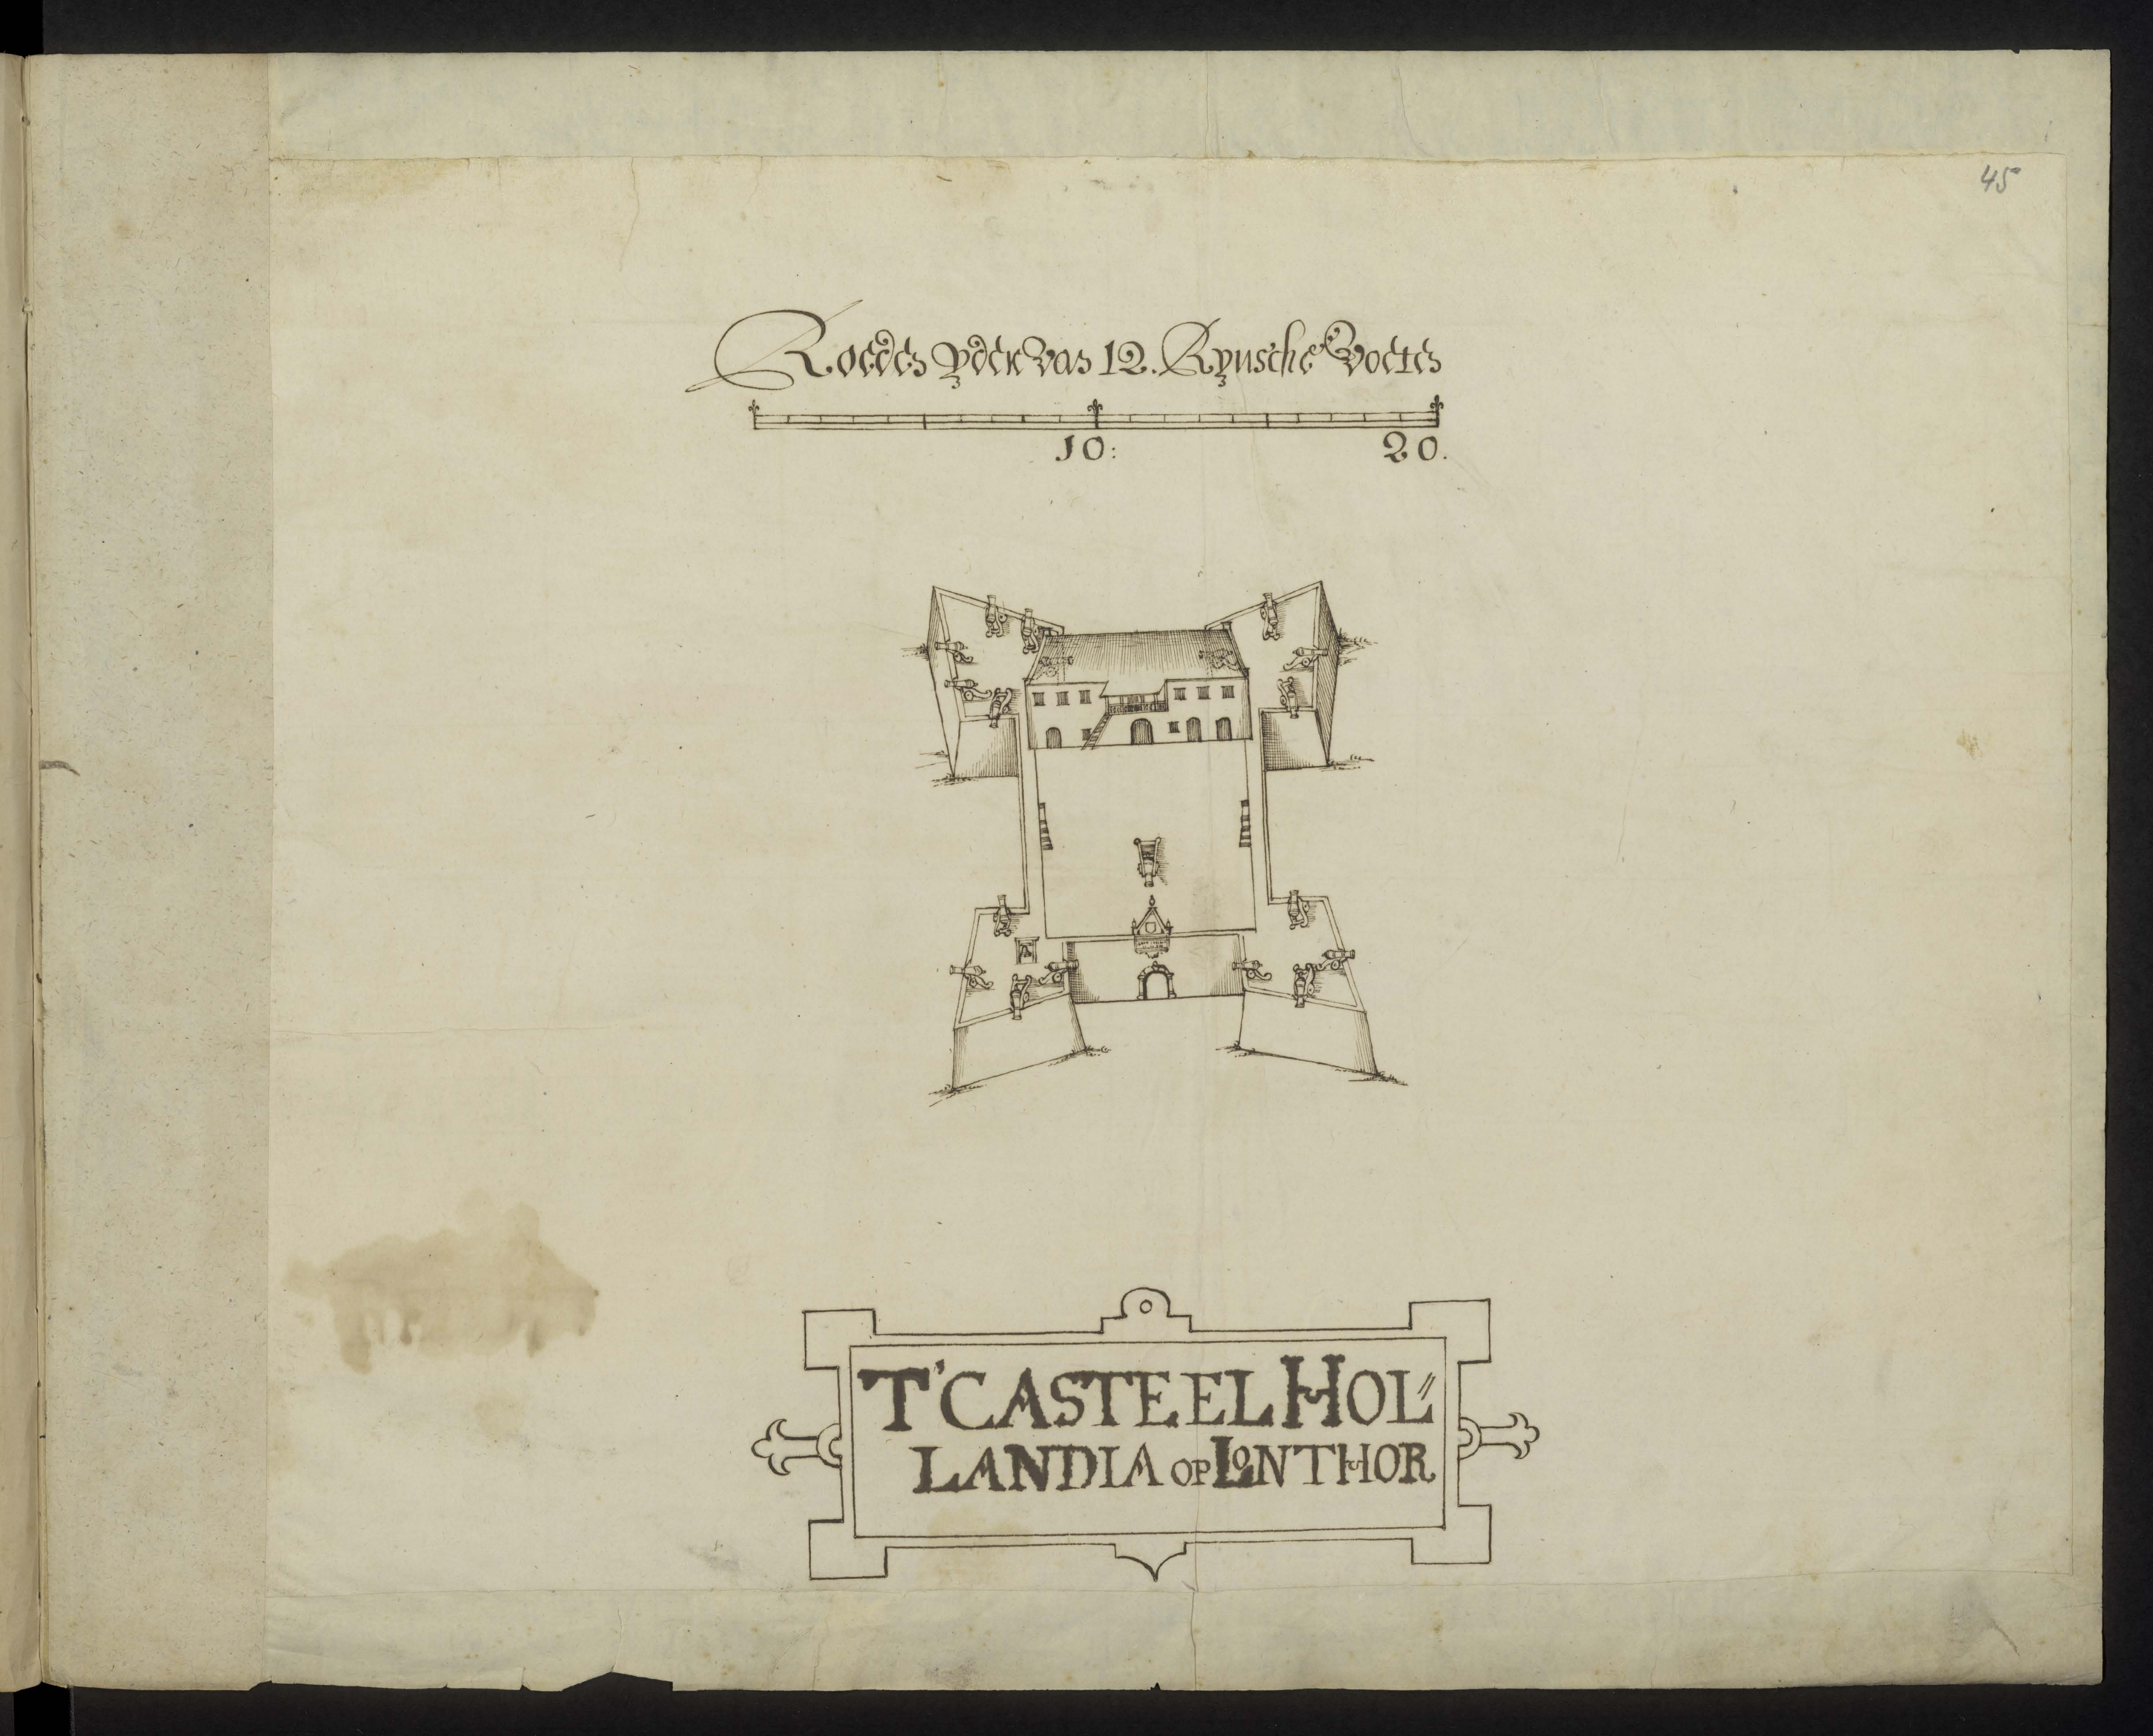 45
Roeden yder van 12. Rynsche Voeten
10: 20.
T'CASTEEL HOL⸗
LANDIA OP LONTHOR